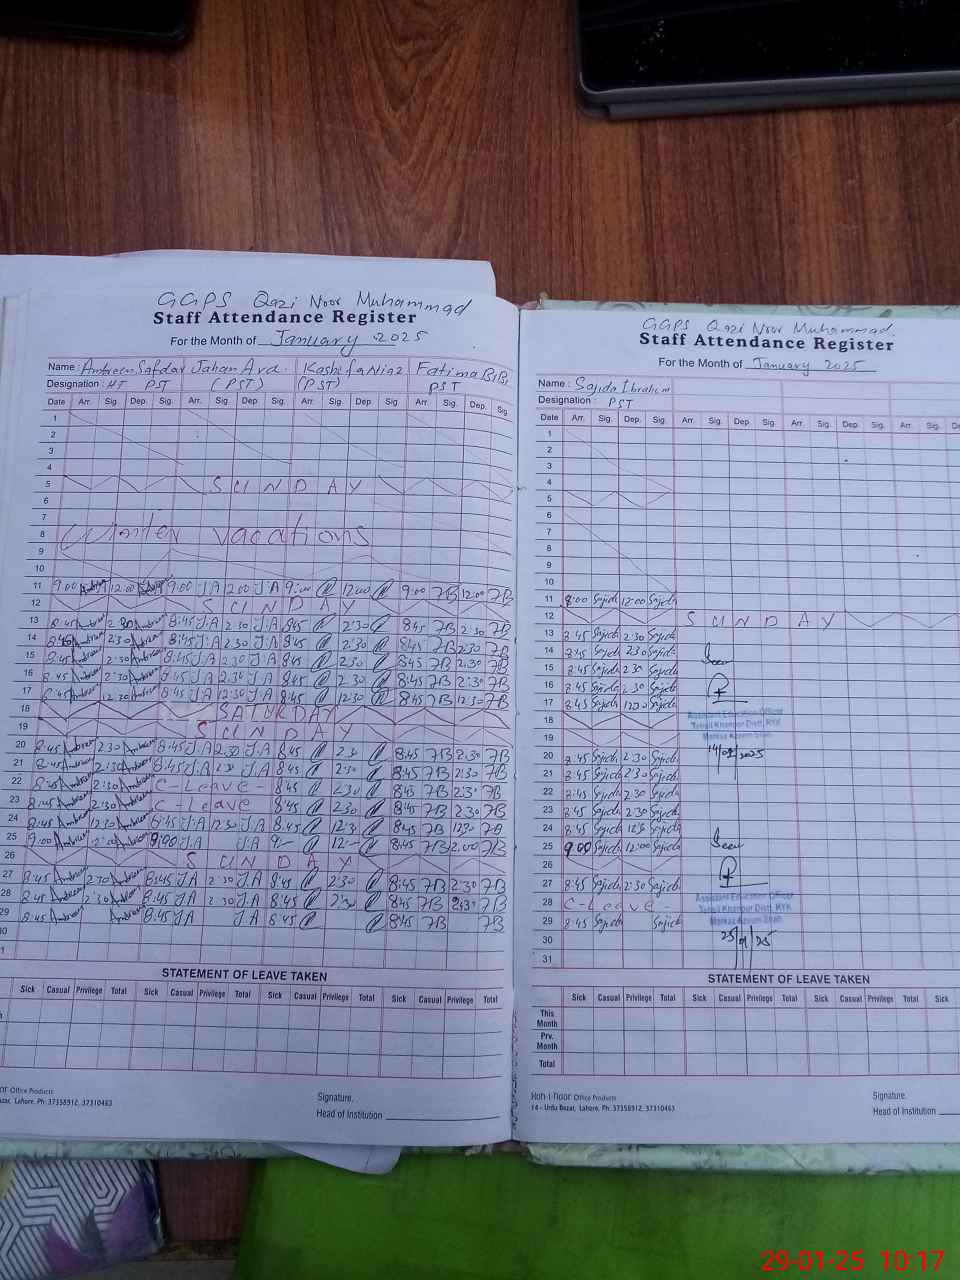 GGPS Qazi Noor Muhammad
Staff Attendance Register
For the Month of January 2025
Name : Ambreen Safdar Jahan Ara. Kashefa Niaz Fatima BiBi
Designation : HT PST (PST) (PST) PST
Date Arr. Sig. Dep. Sig. Arr. Sig. Dep. Sig. Arr. Sig. Dep. Sig. Arr. Sig. Dep. Sig.
1
2
3
4
5 SUNDAY
6
7
8 Winter vacations
9
10
11 9:00 12:00 9:00 J.A 2:00 J.A 9:00 12:00 9:00 7B 12:00 7B
12 SUNDAY
13 8:45 2:30 8:45 J.A 2:30 J.A 8:45 2:30 8:45 7B 2:30 7B
14 8:45 2:30 8:45 J.A 2:30 J.A 8:45 2:30 8:45 7B 2:30 7B
15 8:45 2:30 8:45 J.A 2:30 J.A 8:45 2:30 8:45 7B 2:30 7B
16 8:45 2:30 8:45 J.A 2:30 J.A 8:45 2:30 8:45 7B 2:30 7B
17 8:45 12:30 8:45 J.A 12:30 J.A 8:45 12:30 8:45 7B 12:30 7B
18 SATURDAY
19 SUNDAY
20 8:45 2:30 8:45 J.A 2:30 J.A 8:45 2:30 8:45 7B 2:30 7B
21 8:45 2:30 8:45 J.A 2:30 J.A 8:45 2:30 8:45 7B 2:30 7B
22 2:30 C-Leave - 8:45 2:30 8:45 7B 2:30 7B
23 8:45 2:30 C-Leave 8:45 2:30 8:45 7B 2:30 7B
24 8:45 12:30 8:45 J.A 12:30 J.A 8:45 12:3 8:45 7B 12:30 7B
25 9:00 9:00 J.A J.A 9:- 12:- 8:45 7B 2:00 7B
26 SUNDAY
27 8:45 2:30 8:45 J.A 2:30 J.A 8:45 2:30 8:45 7B 2:30 7B
28 8:45 2:30 8:45 J.A 2:30 J.A 8:45 2:30 8:45 7B 2:30 7B
29 8:45 8:45 J.A J.A 8:45 8:45 7B 7B
STATEMENT OF LEAVE TAKEN
Sick Casual Privilege Total Sick Casual Privilege Total Sick Casual Privilege Total Sick Casual Privilege Total
Office Products
Lahore. Ph: 37358912, 37310463
Signature.
Head of Institution
GGPS Qazi Noor Muhammad.
Staff Attendance Register
For the Month of January 2025
Name : Sajida Ibrahim
Designation : PST
Date Arr. Sig. Dep. Sig. Arr. Sig. Dep. Sig. Arr. Sig. Dep. Sig. Arr. Sig. De
1
2
3
4
5
6
7
8
9
10
11 9:00 Sajida 12:00 Sajida
12 SUNDAY
13 8:45 Sajida 2:30 Sajida
14 8:45 Sajida 2:30 Sajida
15 8:45 Sajida 2:30 Sajida
Seen
16 8:45 Sajida 2:30 Sajida
17 8:45 Sajida 12:30 Sajida
Assistant Education Officer
18 Tehsil Khanpur Distt. RYK
Markaz Azeem Shah
19
20 8:45 Sajida 2:30 Sajida
21 8:45 Sajida 2:30 Sajida
22 8:45 Sajida 2:30 Sajida
23 8:45 Sajida 2:30 Sajida
24 8:45 Sajida 12:30 Sajida
25 9:00 Sajida 12:00 Sajida Seen
26
27 8:45 Sajida 2:30 Sajida
Assistant Education Officer
28 C-Leave - Tehsil Khanpur Distt. RYK
29 8:45 Sajida Sajida Markaz Azeem Shah
30
31
STATEMENT OF LEAVE TAKEN
Sick Casual Privilege Total Sick Casual Privilege Total Sick Casual Privilege Total Sick
This Month
Prv. Month
Total
Koh-i-Noor Office Products
14 - Urdu Bazar, Lahore. Ph: 37358912, 37310463
Signature.
Head of Institution
29-01-25 10:17